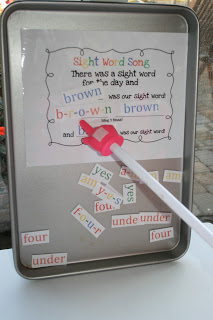 Sight Word Song
There was a sight word
for the day and
brown was our sight word!
b-r-o-w-n brown
and was our sight word!
yes
am
yes
y-e-s
four
f-o-u-r
unde under
four
four
under